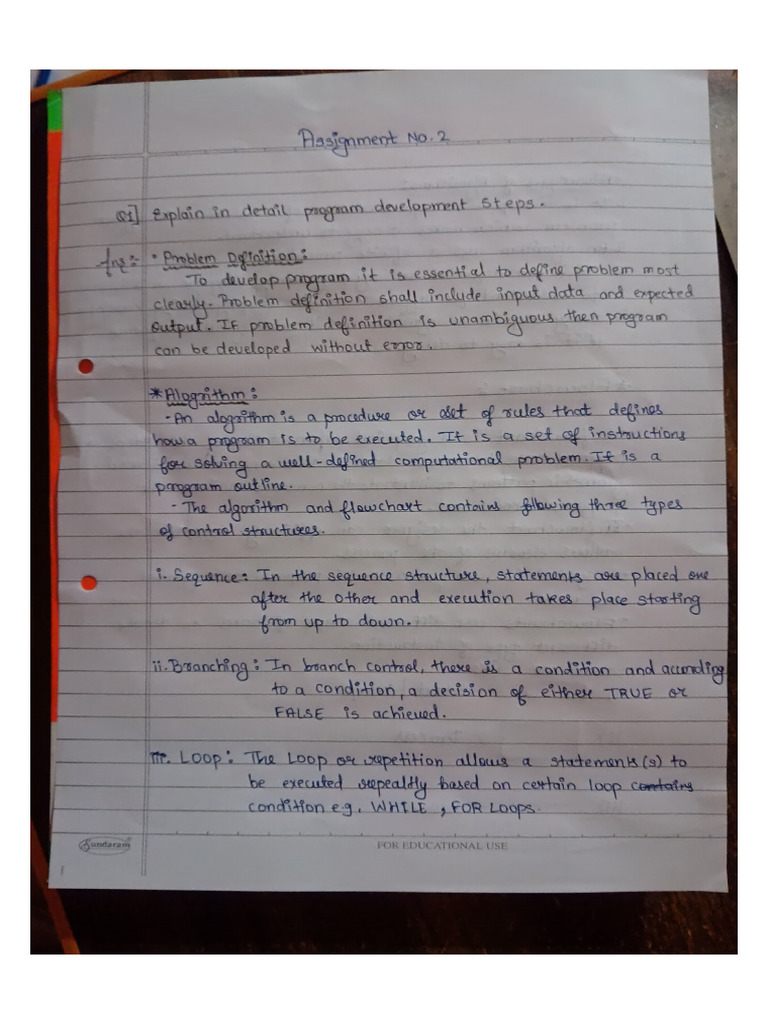 Assignment No. 2
Q1] Explain in detail program development steps.
Ans:- • Problem Definition:
To develop program it is essential to define problem most
clearly. Problem definition shall include input data and expected
output. If problem definition is unambiguous then program
can be developed without error.
* Alogrithm:
- An alogrithm is a procedure or a set of rules that defines
how a program is to be executed. It is a set of instructions
for solving a well-defined computational problem. It is a
program outline.
- The algorithm and flowchart contains following three types
of control structures.
i. Sequence: In the sequence structure, statements are placed one
after the other and execution takes place starting
from up to down.
ii. Branching: In branch control, there is a condition and according
to a condition, a decision of either TRUE or
FALSE is achieved.
iii. Loop: The Loop or repetition allows a statements(s) to
be executed repealtly based on certain loop contains
condition e.g. WHILE, FOR Loops.
Sundaram
FOR EDUCATIONAL USE